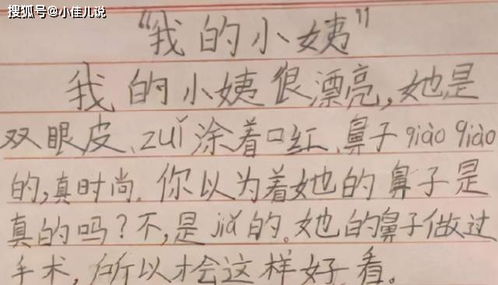 搜狐号@小佳儿说
"我的小姨"
我的小姨很漂亮,她是
双眼皮、zuǐ涂着口红、鼻子qiào qiào
的,真时尚.你以为着她的鼻子是
真的吗?不,是jiǎ的。她的鼻子做过
手术,所以才会这样好看。